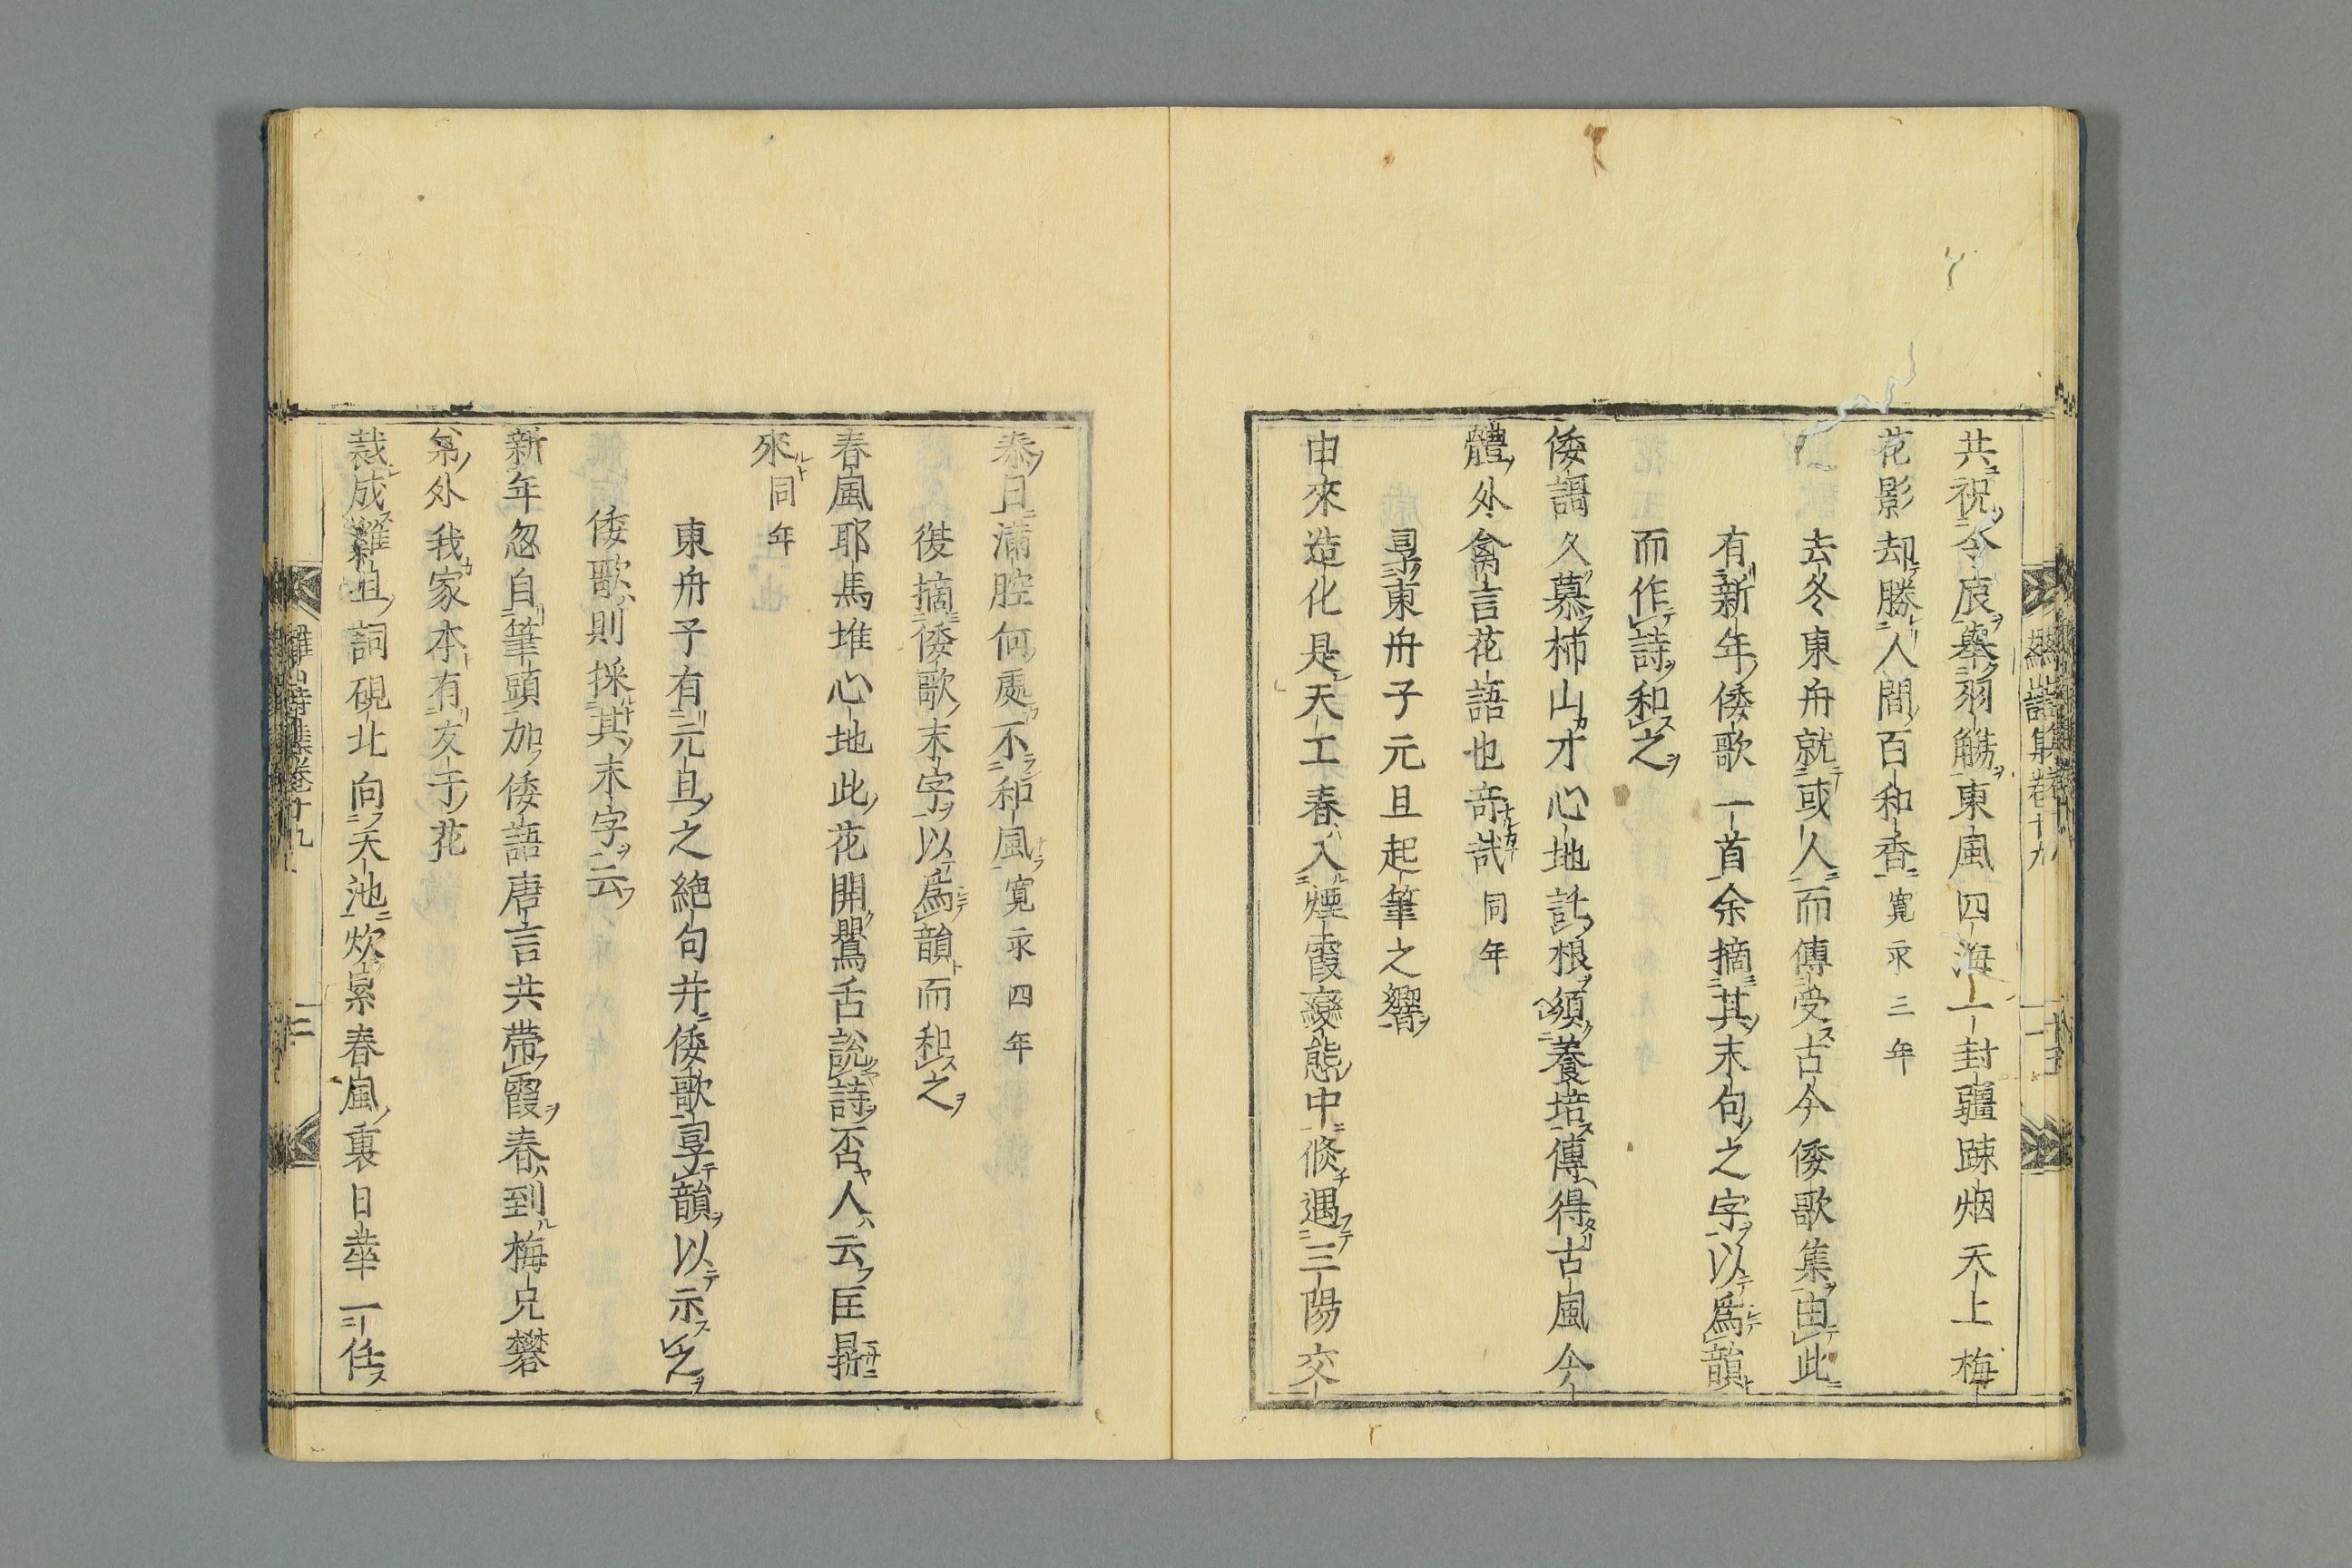 共祝令辰擧羽觴東風四海一封疆踈烟天上梅
花影却勝人間百和香 寛永三年
去冬東舟就或人而傳受古今倭歌集由此
有新年倭歌一首余摘其末句之字以爲韻
而作詩和之
倭謌久慕柿山才心地託根須養培傳得古風今
體外禽言花語也奇哉 同年
尋東舟子元旦起筆之響
由來造化是天工春入煙霞變態中倐遇三陽交
泰日滿腔何處不和風 寛永四年
復摘倭歌末字以爲韻而和之
春風耶馬堆心地此花開鸎舌說詩否人云匡鼎
來 同年
東舟子有元旦之絶句幷倭歌尋韻以示之
倭歌則採其末字云
新年忽自筆頭加倭語唐言共帶霞春到梅兄礬
弟外我家本有友于花
裁成難徂詞硯北向天池炊累春嵐裏日華一任
羅山詩集卷十九
三